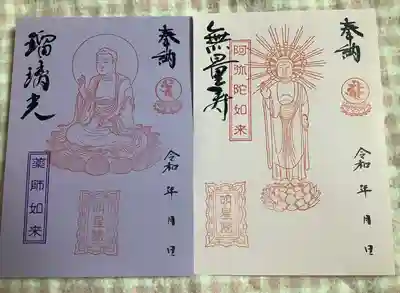 奉納
瑠璃光
薬師如来
令和 年 月 日
奉納
無量寿
阿弥陀如来
令和 年 月 日